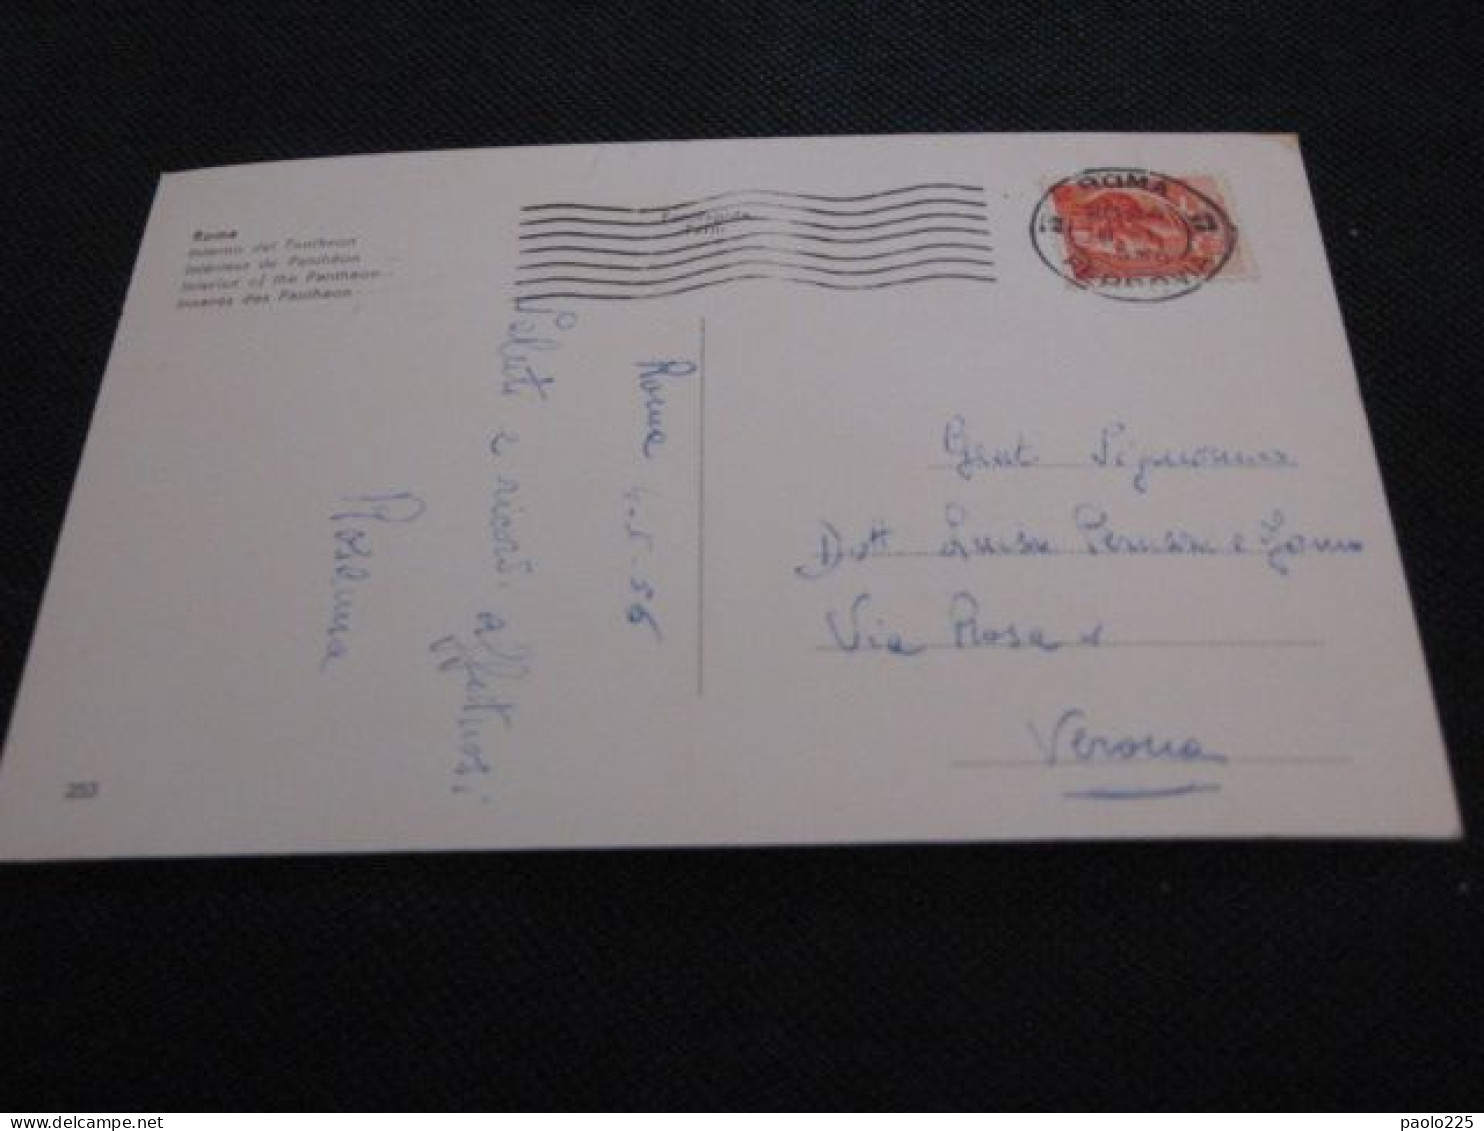 Roma
Interno del Pantheon
Intérieur du Panthéon
Interior of the Pantheon
Inneres des Pantheon
ROMA
FERROVIA
Roma 4-5-56
Saluti e ricordi affettuosi
Rosanna
Gent. Signorina
Dott Luisa
Via Rosa
Verona
253
paolo225